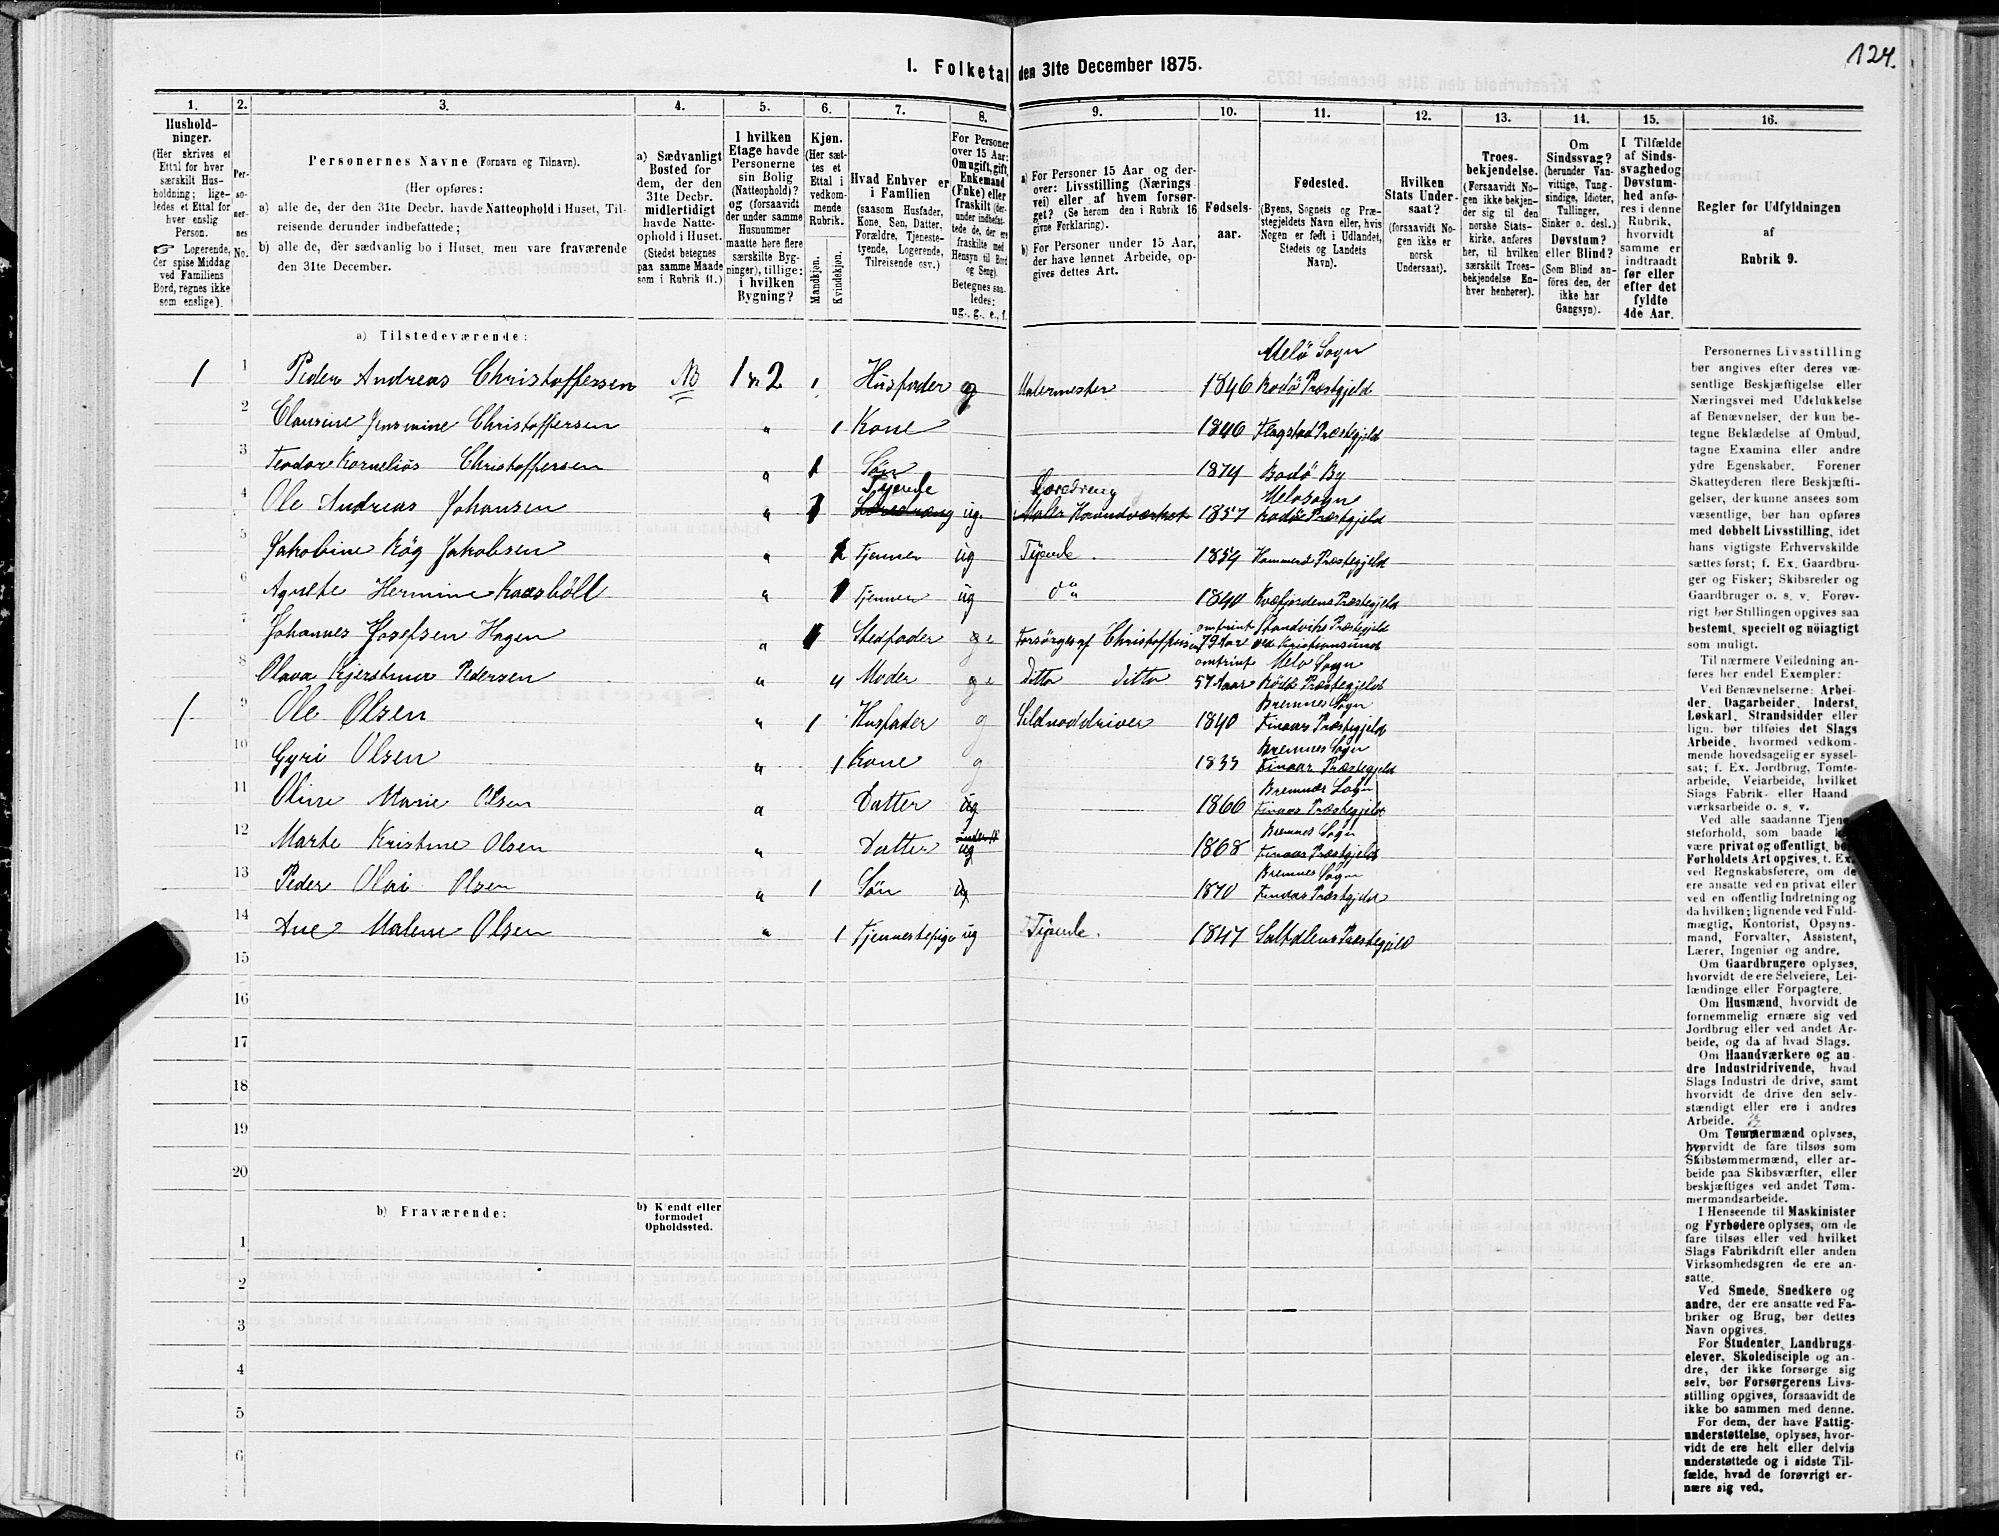 124.
1. Folketal den 31te December 1875.
1. 2. 3. 4. 5. 6. 7. 8. 9. 10. 11. 12. 13. 14. 15. 16.
Hushold-
ninger.
(Her skrives et
Ettal for hver
særskilt Hus-
holdning; lige-
ledes et Ettal for
hver enslig
Person.
☞ Logerende,
der spise Middag
ved Familiens
Bord, regnes ikke
som enslige).
Per-
so-
ner-
nes
No.
Personernes Navne (Fornavn og Tilnavn).
(Her opføres:
a) alle de, der den 31te Decbr. havde Natteophold i Huset, Til-
reisende derunder indbefattede;
b) alle de, der sædvanlig bo i Huset, men vare fraværende
den 31te December.
a) Sædvanligt
Bosted for
dem, der den
31te Decbr.
midlertidigt
havde Natte-
ophold i Huset.
(Stedet betegnes
paa samme Maade
som i Rubrik 11.)
I hvilken
Etage havde
Personerne
sin Bolig
(Natteophold)?
og (forsaavidt
der under samme
Husnummer
maatte høre flere
særskilte Byg-
ninger), tillige:
i hvilken
Bygning?
Kjøn.
(Her sæt-
tes et
Ettal i
vedkom-
mende
Rubrik.
Mandkjøn.
Kvindekjøn.
Hvad Enhver er
i Familien
(saasom Husfader,
Kone, Søn, Datter,
Forældre, Tjeneste-
tyende, Logerende,
Tilreisende osv.)
For Personer
over 15 Aar:
Om ugift, gift,
Enkemand
(Enke) eller
fraskilt (der-
under indbefat-
tede de, der ere
fraskilte med
Hensyn til Bord
og Seng).
Betegnes saa-
ledes:
ug., g., e., f.
a) For Personer 15 Aar og der-
over: Livsstilling (Nærings
vei) eller af hvem forsør-
get? (Se herom den i Rubrik 16
givne Forklaring).
b) For Personer under 15 Aar,
der have lønnet Arbeide, op-
gives dettes Art.
Fødsels-
aar.
Fødested.
(Byens, Sognets og Præ-
stegjeldets Navn eller, hvis
Nogen er født i Udlandet,
Stedets og Landets
Navn).
Hvilken
Stats Under-
saat?
(forsaavidt No-
gen ikke er
norsk
Undersaat).
Troes-
bekjendelse.
(Forsaavidt No-
gen ikke bekjen-
der sig til den
norske Stats-
kirke, anføres
her, til hvilken
særskilt Troes-
bekjendelse En-
hver henhører).
Om
Sindssvag?
(herunder Van-
vittige, Tung-
sindige, Idioter,
Tullinger,
Sinker o. desl.)
Døvstum?
eller Blind?
(Som Blind an-
føres den, der
ikke har
Gangsyn).
I Tilfælde
af Sinds-
svaghed og
Døvstum-
hed anfø-
res i denne
Rubrik,
hvorvidt
samme er
indtraadt
før eller
efter det
fyldte
4de Aar.
Regler for Udfyldningen
af
Rubrik 9.
a) Tilstedeværende:
Melö Sogn
1 1 Peder Andreas Christoffersen NB 1 n 2 1 Husfader g Malermester 1846 Rodö Præstgjeld
2 Clausine Jensmine Christoffersen " 1 Kone 1846 Flagstad Præstegjeld
3 Teodor Kornelios Christoffersen " 1 Søn 1874 Bodö By
Tjende Læredreng Melosogn
4 Ole Andreas Johansen " 1 Læredræng ug. Maler Haandværket 1857 Rodö Præstgjeld
5 Jakobine Røg Jakobsen " 1 Tjenner ug Tjende. 1854 Hammerö Præstegjeld
6 Agnete Hermine Kaasböll " 1 Tjenner ug do " 1840 Kvæfjordens Præstegjeld
omtrint Standviks Præstegjeld
7 Johannes Josefsen Hagen " 1 Stedfader g Forsörges af Christoffersen 79 Aar ved Kristiansund
omtrint Melo Sogn
8 Olava Kjerstina Pedersen " " Moder g Ditto Ditto 57 Aar Rödö Præstegjeld
Bremnes Sogn
1 9 Ole Olsen " 1 Husfader g Sildnoddriver 1840 Finaas Præstegjeld
Bremnes Sogn
10 Gyri Olsen " 1 Kone g 1833 Finaas Præstegjeld
Bremnæs Sogn
11 Oline Marie Olsen " Datter ug 1866 Finaas Præstegjeld
Bremnes Sogn
12 Marte Kristine Olsen " Datter ug 1868 Finaas Præstgjeld
Bremnes Sogn
13 Peder Olai Olsen " 1 Søn ug 1870 Findas Præstgjeld
14 Ane Malene Olsen " 1 Tjennestepige ug Tjende. 1847 Saltdalens Præstegjeld
15
16
17
18
19
20
b) Fraværende:
b) Kjendt eller
formodet
Opholdssted.
1
2
3
4
5
6
Personernes Livsstilling
bør angives efter deres væ-
sentlige Beskjæftigelse eller
Næringsvei med Udelukkelse
af Benævnelser, der kun be-
tegne Beklædelse af Ombud,
tagne Examina eller andre
ydre Egenskaber. Forener
Skatteyderen flere Beskjæfti-
gelser, der kunne ansees som
væsentlige, bør han opføres
med dobbelt Livsstilling, idet
hans vigtigste Erhvervskilde
sættes først; f. Ex. Gaardbru-
ger og Fisker; Skibsreder og
Gaardbruger o. s. v. Forøv-
rigt bør Stillingen opgives saa
bestemt, specielt og nøiagtigt
som muligt.
Til nærmere Veiledning an-
føres her endel Exempler:
Ved Benævnelserne: Arbei-
der, Dagarbeider, Inderst,
Løskarl, Strandsidder eller
lign. bør tilføies det Slags
Arbeide, hvormed vedkom-
mende hovedsagelig er syssel-
sat; f. Ex. Jordbrug, Tomte-
arbeide, Veiarbeide, hvilket
Slags Fabrik- eller Haand
værksarbeide o. s. v.
Ved alle saadanne Tjene-
steforhold, som baade
være privat og offentligt, bør
Forholdets Art opgives, t. Ex.
ved Regnskabsførere, om de
ere ansatte ved en privat eller
ved en offentlig Indretning og
da hvilken; lignende ved Fuld-
mægtig, Kontorist, Opsyns-
mand, Forvalter, Assistent,
Lærer, Ingeniør og andre.
Om Gaardbrugere oplyses,
hvorvidt de ere Selveiere, Lei-
lændinge eller Forpagtere.
Om Husmænd, hvorvidt de
fornemmelig ernære sig ved
Jordbrug eller ved andet Ar-
beide, og da af hvad Slags.
Om Haandværkere og an-
dre Industridrivende, hvad
Slags Industri de drive, samt
hvorvidt de drive den selv-
stændigt eller ere i andres
Arbeide.
Om Tømmermænd oplyses,
hvorvidt de fare tilsøs som
Skibstømmermænd, eller ar-
beide paa Skibsværfter, eller
beskjæftiges ved andet Tøm-
mermandsarbeide.
I Henseende til Maskinister
og Fyrbødere oplyses, om de
fare tilsøs eller ved hvilket
Slags Fabrikdrift eller anden
Virksomhedsgren de ere an-
satte.
Ved Smede, Snedkere og
andre, der ere ansatte ved Fa-
briker og Brug, bør dettes
Navn opgives.
For Studenter, Landbrugs-
elever, Skoledisciple og an-
dre, der ikke forsørge sig
selv, bør Forsørgerens Livs-
stilling opgives, forsaavidt de
ikke bo sammen med denne.
For dem, der have Fattig-
understøttelse, oplyses, hvor-
vidt de ere helt eller delvis
understøttede og i sidste Til-
fælde, hvad de forøvrigt er-
nære sig ved.